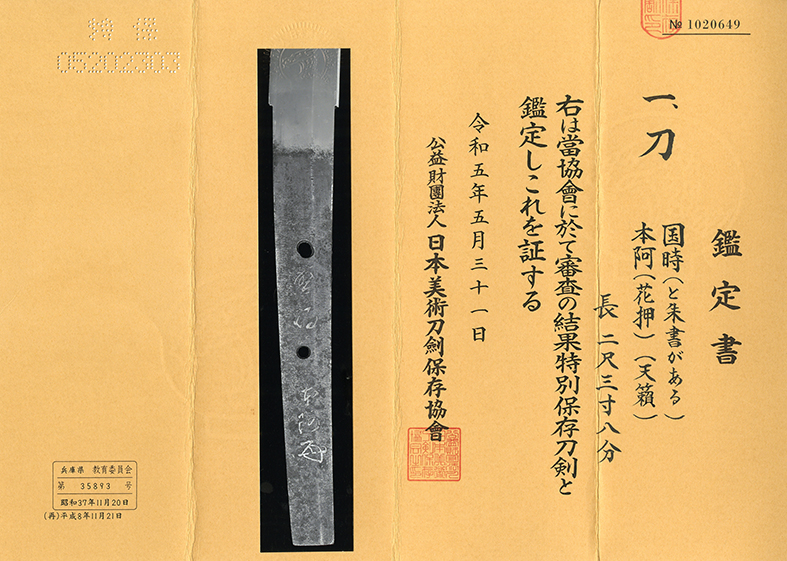 № 1020649
鑑定書
一、刀
国時(と朱書がある)
本阿(花押)(天籟)
長 二尺三寸八分
右は當協會に於て審査の結果特別保存刀剣と
鑑定しこれを証する
令和五年五月三十一日
公益財團法人 日本美術刀劍保存協會
特保
05202303
兵庫県 教育委員会
第 35893 号
昭和37年11月20日
(再)平成8年11月21日
本阿